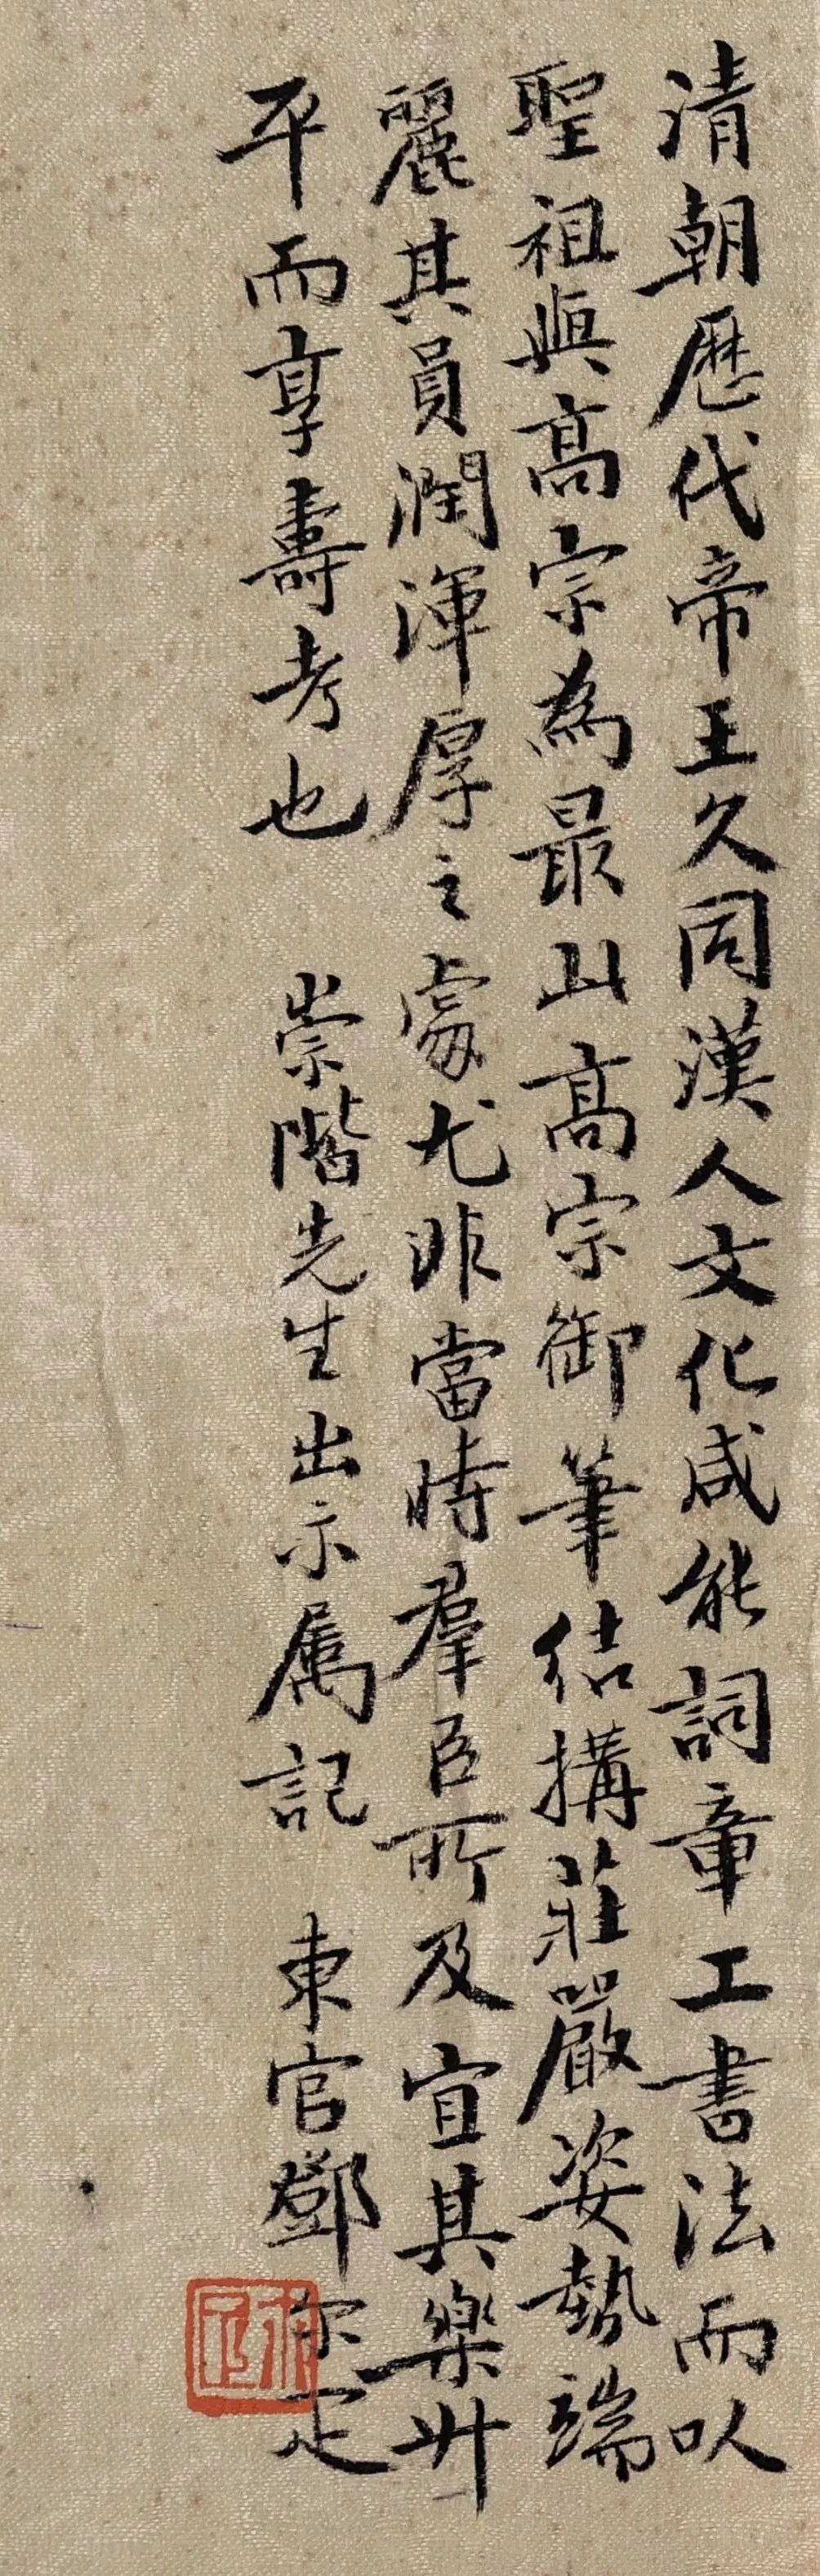 清朝歷代帝王久同漢人文化咸能詞章工書法而以
聖祖與高宗為最此高宗御筆結搆莊嚴姿勢端
麗其員潤渾厚之處尤非當時羣臣所及宜其樂升
平而享壽考也 崇階先生出示属記 東官鄧尔疋